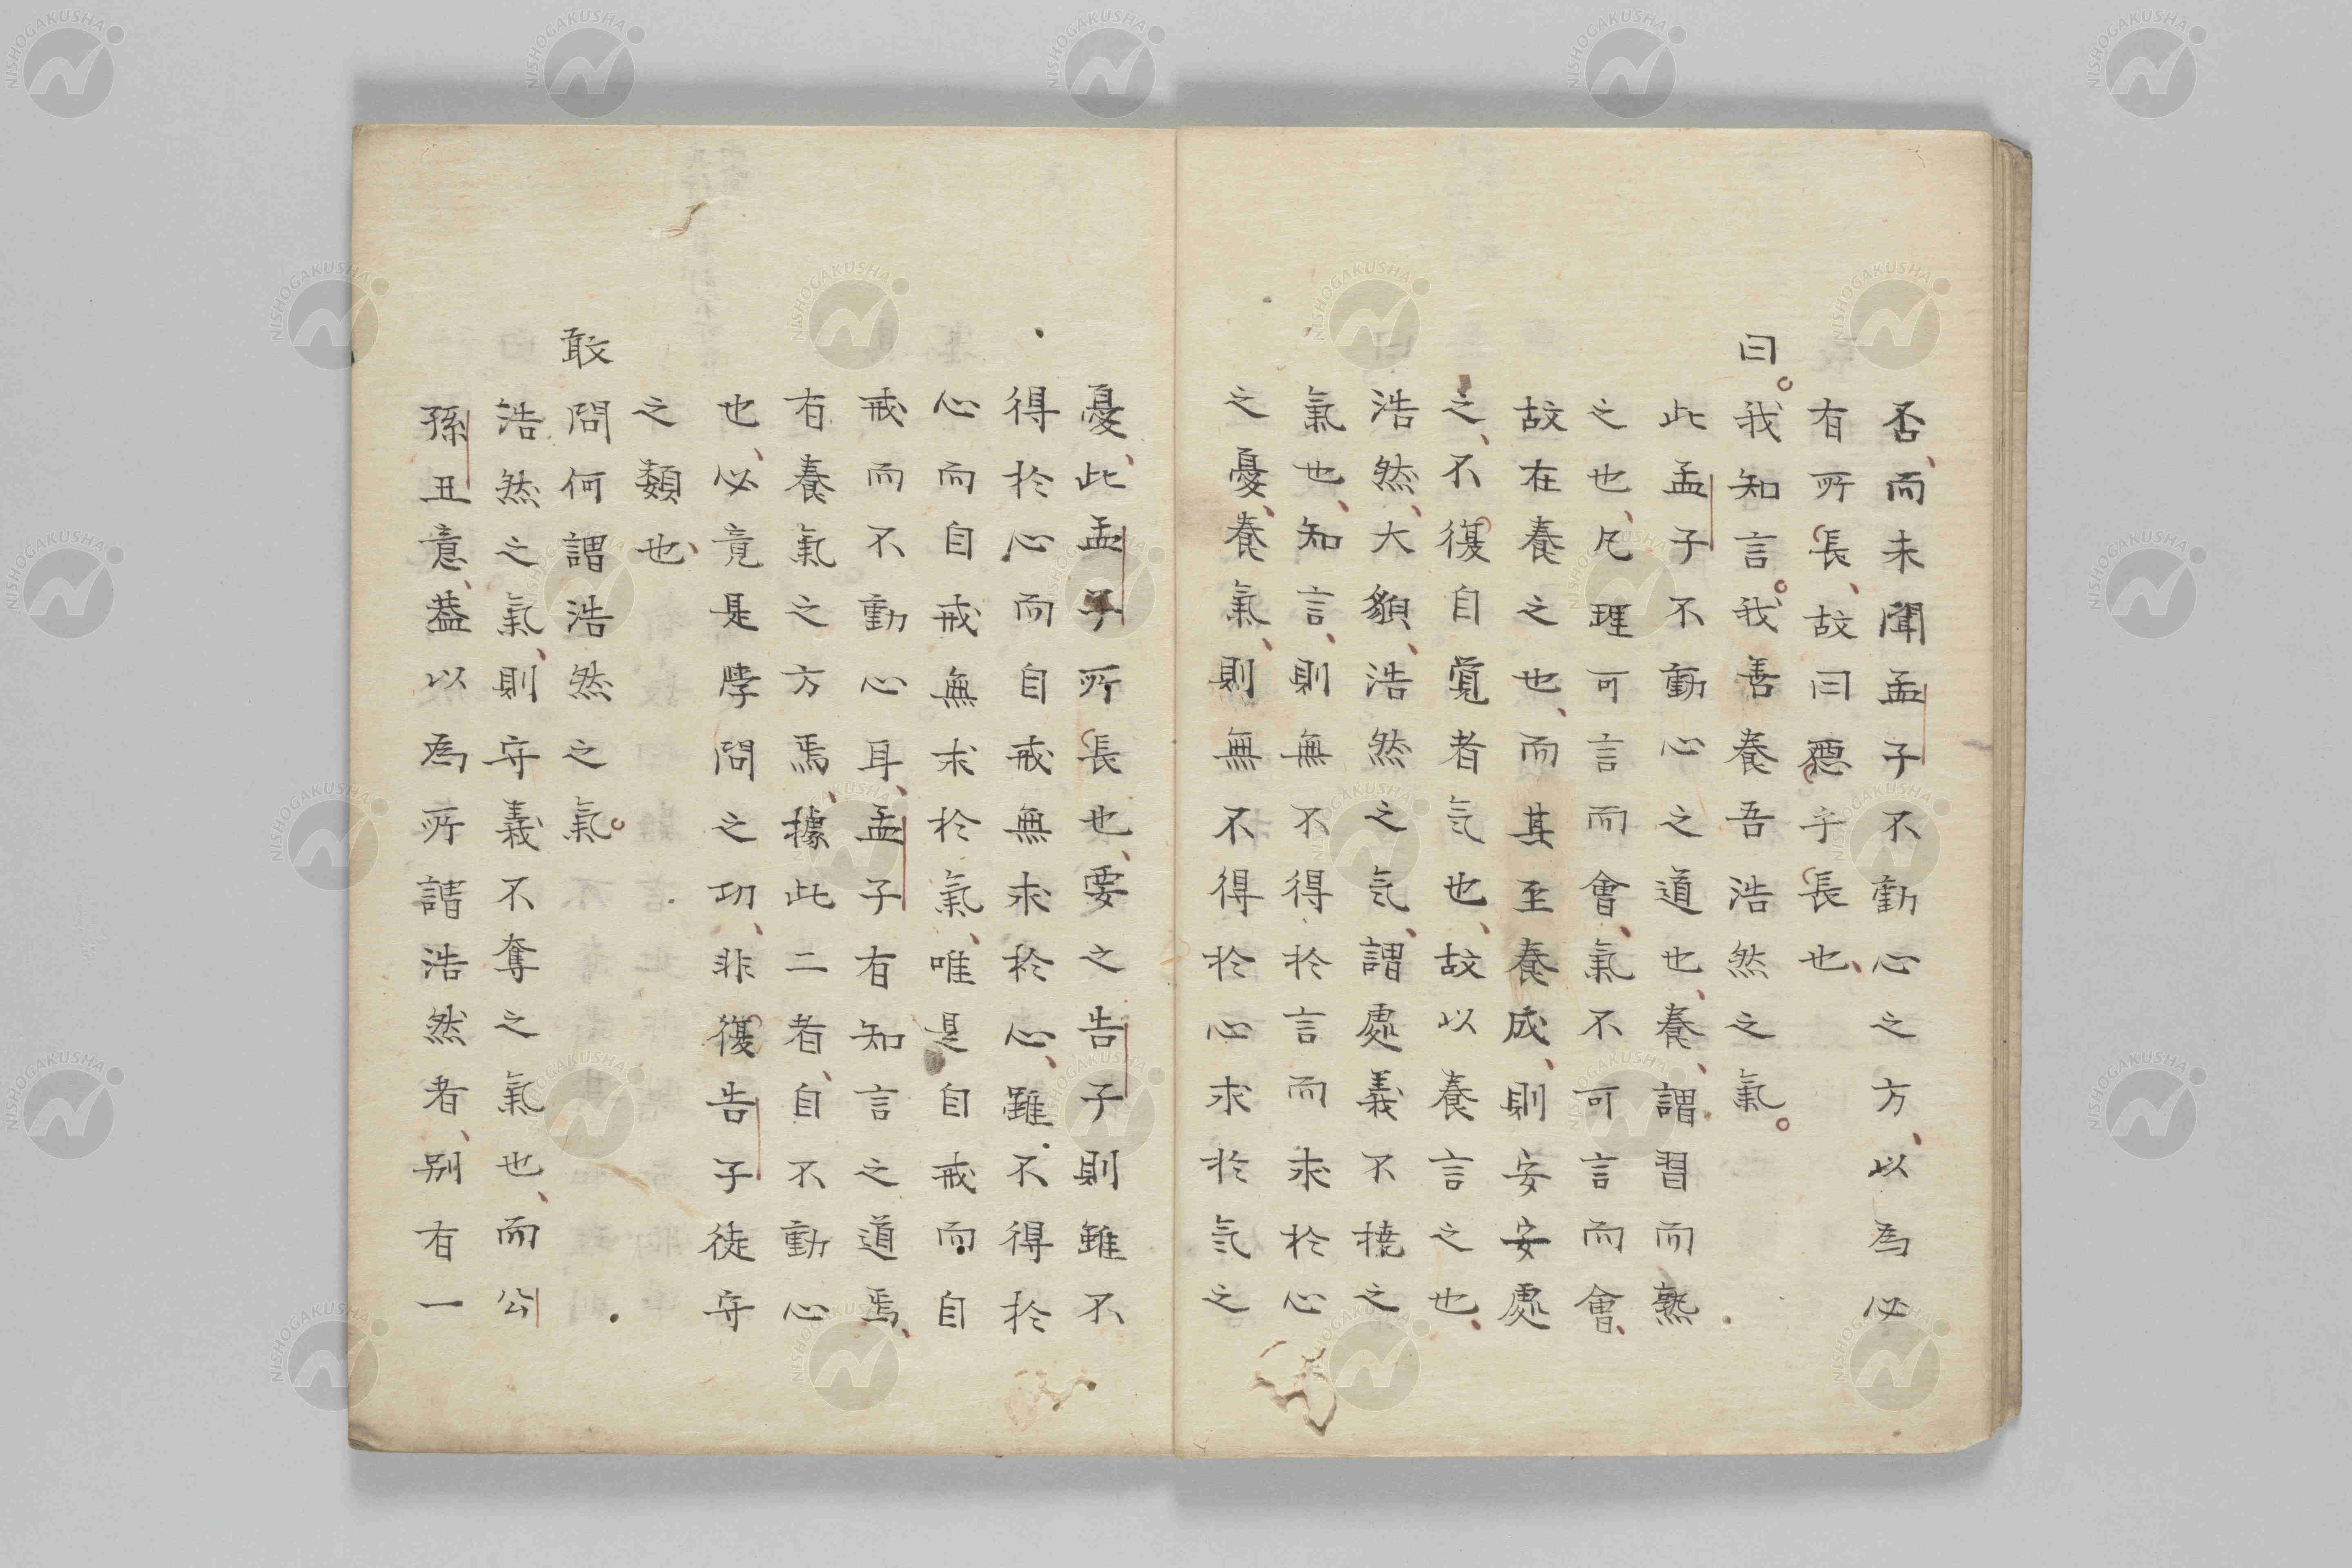 否而未聞孟子不動心之方以為必
有所長故曰惡乎長也
曰我知言我善養吾浩然之氣
此孟子不動心之道也養謂習而熟
之也凡理可言而會氣不可言而會
故在養之也而其至養成則安安處
之不復自覺者気也故以養言之也
浩然大貌浩然之気謂處義不撓之
氣也知言則無不得於言而求於心
之憂養氣則無不得於心求於気之
憂此孟子所長也要之告子則雖不
得於心而自戒無求於心雖不得於
心而自戒無求於氣唯是自戒而自
戒而不動心耳孟子有知言之道焉
有養氣之方焉據此二者自不動心
也必竟是學問之功非復告子徒守
之類也
敢問何謂浩然之氣
浩然之氣則守義不奪之氣也而公
孫丑意葢以為所請浩然者別有一
NISHOGAKUSHA